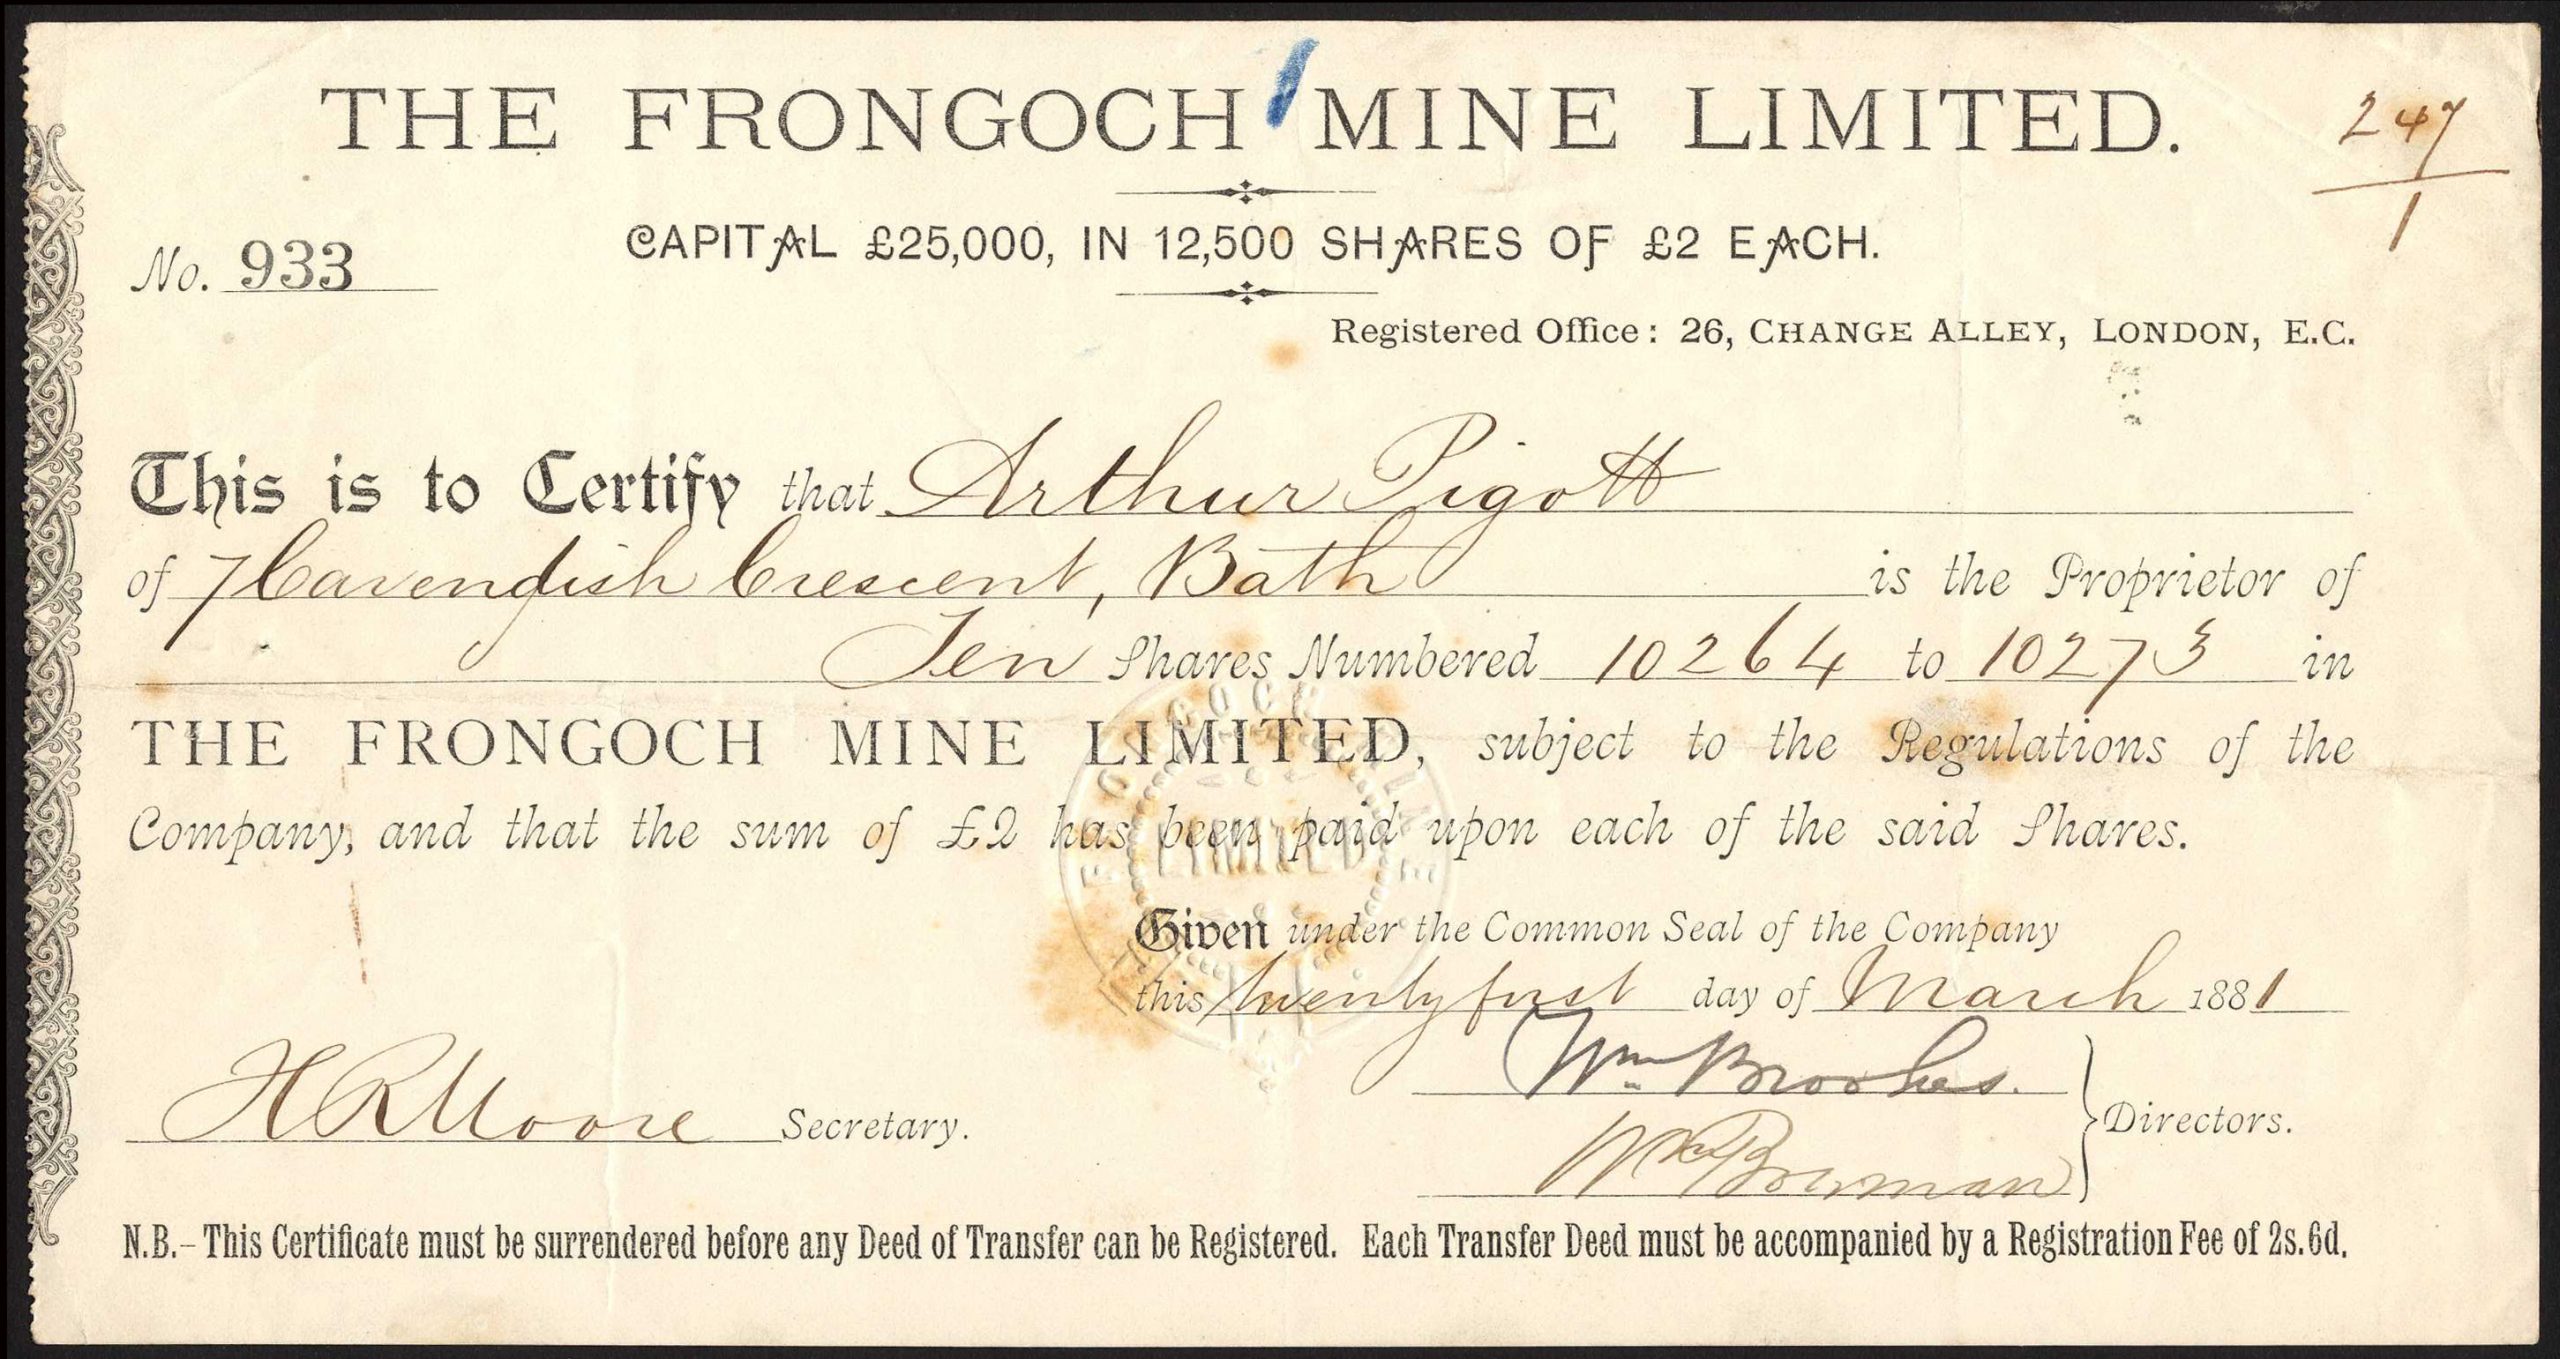 THE FRONGOCH MINE LIMITED.
247
1
No. 933
CAPITAL £25,000, IN 12,500 SHARES OF £2 EACH.
Registered Office: 26, CHANGE ALLEY, LONDON, E.C.
This is to Certify that Arthur Pigott
of 7 Cavendish Crescent, Bath is the Proprietor of
Ten Shares Numbered 10264 to 10273 in
THE FRONGOCH MINE LIMITED, subject to the Regulations of the
Company, and that the sum of £2 has been paid upon each of the said Shares.
LIMITED
Given under the Common Seal of the Company
this twenty first day of March 1881
Wm Brookes.
H R Moore Secretary.
Directors.
Wm Bowman
N.B.- This Certificate must be surrendered before any Deed of Transfer can be Registered. Each Transfer Deed must be accompanied by a Registration Fee of 2s. 6d.